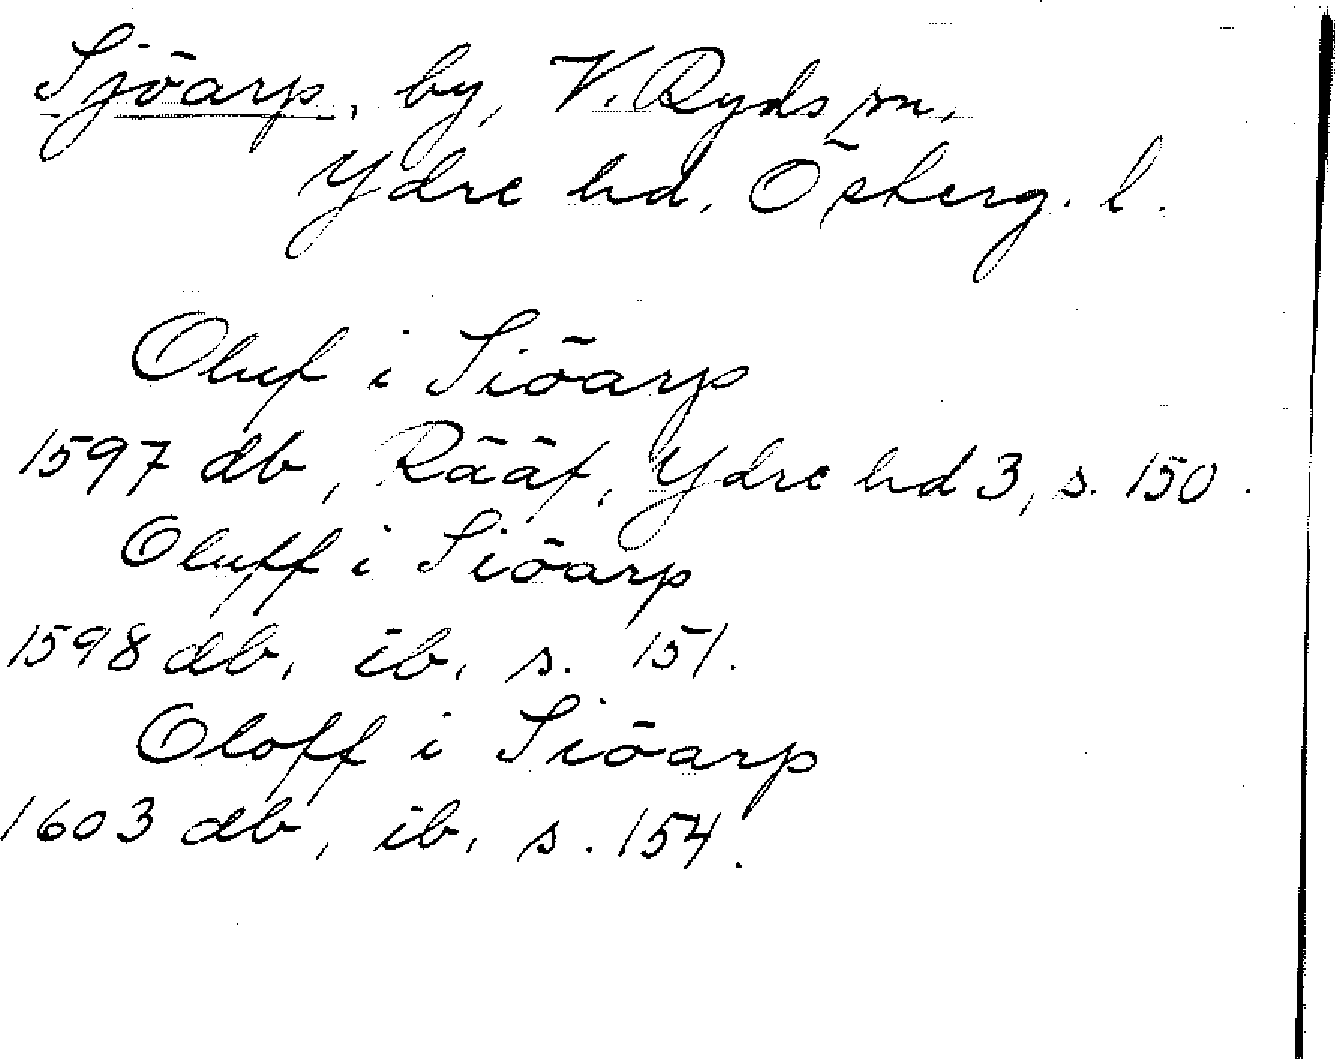 Sjöarp, by, V. Ryds sn,
Ydre hd, Österg. l.
Oluf i Siöarp
1597 db, Rääf, Ydre hd 3, s. 150.
Oluff i Siöarp
1598 db, ib, s. 151.
Oloff i Siöarp
1603 db, ib, s. 154.